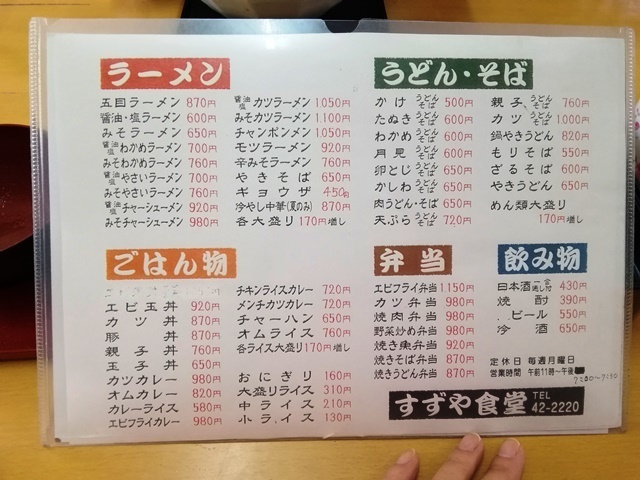 ラーメン
五目ラーメン 870円
醤油・塩ラーメン 600円
みそラーメン 650円
醤油 塩 わかめラーメン 700円
みそわかめラーメン 760円
醤油 塩 やさいラーメン 700円
みそやさいラーメン 760円
醤油 塩 チャーシューメン 920円
みそチャーシューメン 980円
醤油 塩 カツラーメン 1,050円
みそカツラーメン 1,100円
チャンポンメン 1,050円
モツラーメン 920円
辛みそラーメン 760円
やきそば 650円
ギョウザ 450円
冷やし中華(夏のみ) 870円
各大盛り 170円増し
うどん・そば
かけ うどん そば 500円
たぬき うどん そば 600円
わかめ うどん そば 600円
月見 うどん そば 600円
卵とじ うどん そば 650円
かしわ うどん そば 650円
肉うどん・そば 650円
天ぷら うどん そば 720円
親子 うどん そば 760円
カツ うどん そば 1000円
鍋やきうどん 820円
もりそば 550円
ざるそば 600円
やきうどん 650円
めん類大盛り
170円増し
ごはん物
エビ玉丼 920円
カツ丼 870円
豚丼 870円
親子丼 760円
玉子丼 650円
カツカレー 980円
オムカレー 820円
カレーライス 580円
エビフライカレー 980円
チキンライスカレー 720円
メンチカツカレー 720円
チャーハン 650円
オムライス 760円
各ライス大盛り 170円増し
おにぎり 160円
大盛りライス 310円
中ライス 210円
小ライス 130円
弁当
エビフライ弁当 1,150円
カツ弁当 980円
焼肉弁当 980円
野菜炒め弁当 980円
焼き魚弁当 920円
焼きそば弁当 870円
焼きうどん弁当 870円
飲み物
日本酒 430円
焼酎 390円
ビール 550円
冷酒 650円
定休日 毎週月曜日
営業時間 午前11時〜午後
すずや食堂 TEL 42-2220